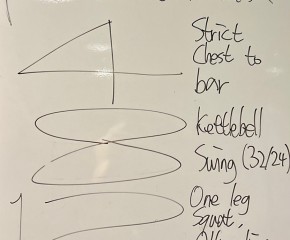 Strict
Chest to
bar
Kettlebell
Swing (32/24)
One leg
squat,